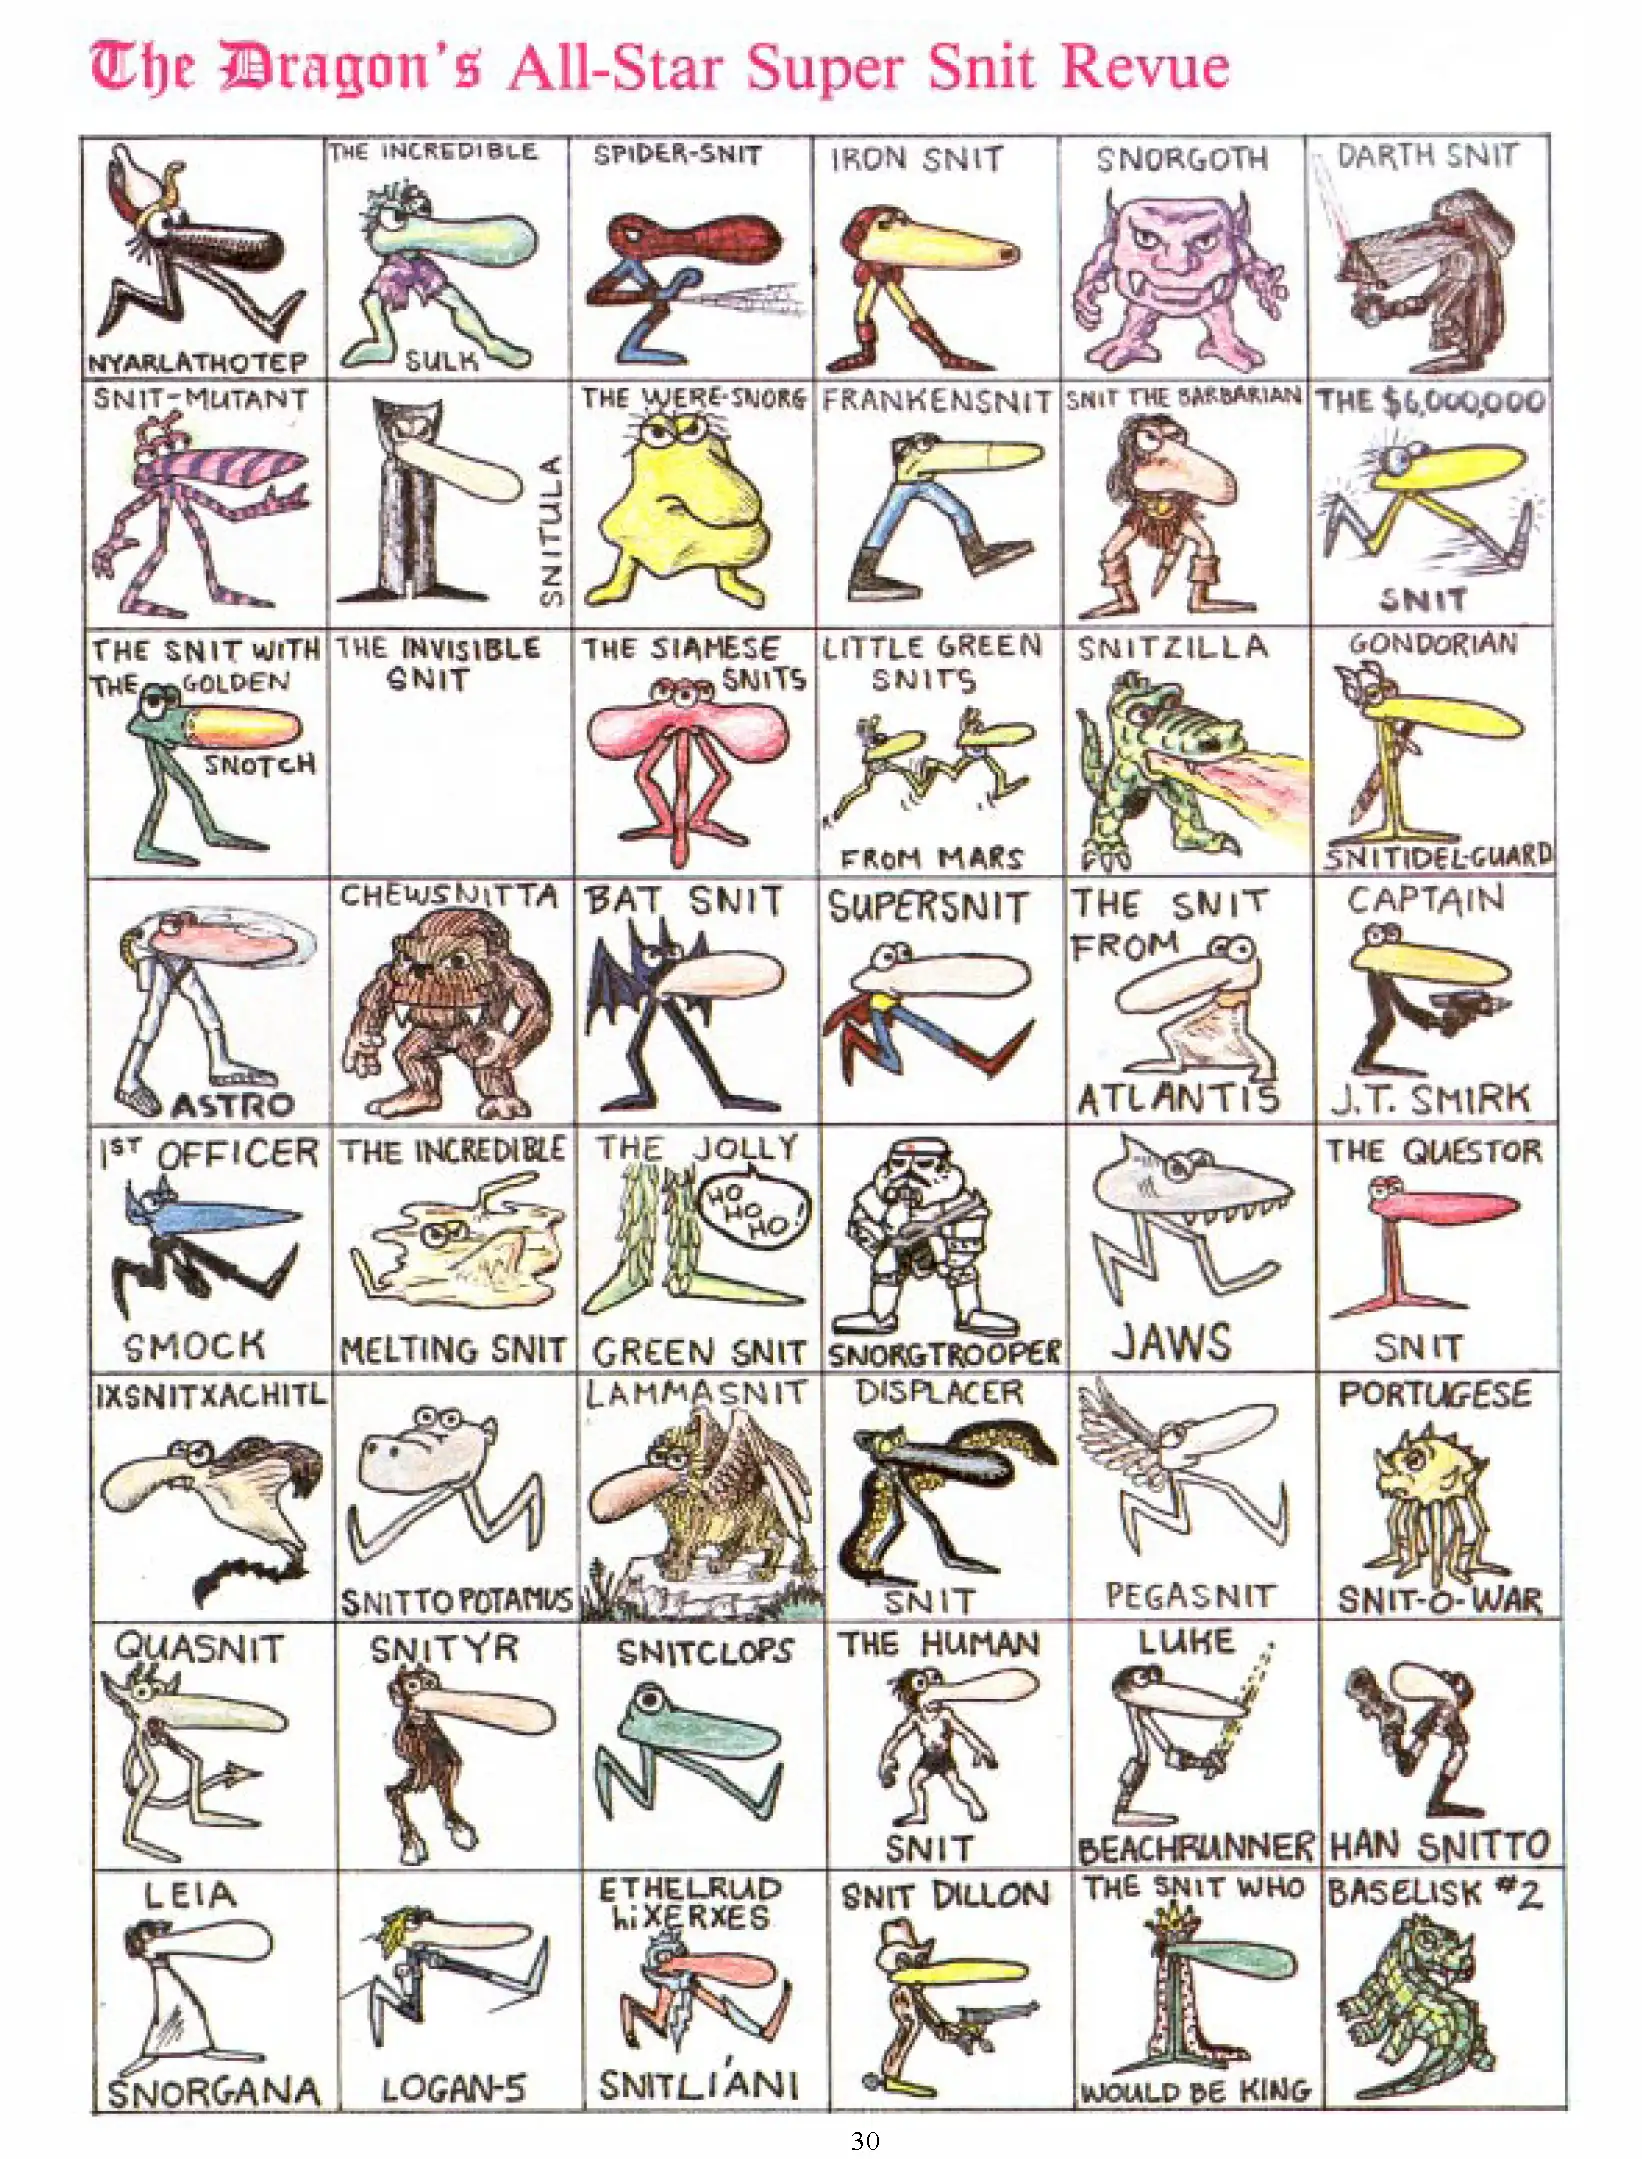 The Dragon's All-Star Super Snit Revue
NYARLATHOTEP
THE INCREDIBLE
SULK
SPIDER-SNIT
IRON SNIT
SNORGOTH
DARTH SNIT
SNIT-MUTANT
SNITULA
THE WERE-SNORG
FRANKENSNIT
SNIT THE BARBARIAN
THE $6,000,000
SNIT
THE SNIT WITH
THE GOLDEN
SNOTCH
THE INVISIBLE
SNIT
THE SIAMESE
SNITS
LITTLE GREEN
SNITS
FROM MARS
SNITZILLA
GONDORIAN
SNITIDEL-GUARD
ASTRO
CHEWSNITTA
BAT SNIT
SUPERSNIT
THE SNIT
FROM
ATLANTIS
CAPTAIN
J.T. SMIRK
1ST OFFICER
SMOCK
THE INCREDIBLE
MELTING SNIT
THE JOLLY
HO
HO
HO!
GREEN SNIT
SNORGTROOPER
JAWS
THE QUESTOR
SNIT
IXSNITXACHITL
SNITTOPOTAMUS
LAMMASNIT
DISPLACER
SNIT
PEGASNIT
PORTUGESE
SNIT-O-WAR
QUASNIT
SNITYR
SNITCLOPS
THE HUMAN
SNIT
LUKE
BEACHRUNNER
HAN SNITTO
LEIA
SNORGANA
LOGAN-5
ETHELRUD
hi XERXES
SNITLÍANI
SNIT DILLON
THE SNIT WHO
WOULD BE KING
BASELISK #2
30